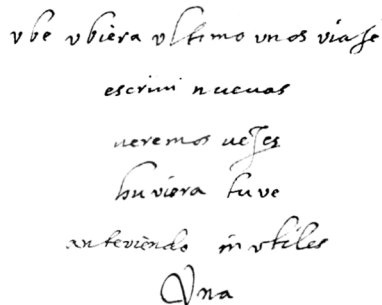 vbe vbiera vltimo vnos viaje
escrivi nuevas
veremos vezes
huviera tuve
anteviendo invtiles
Una